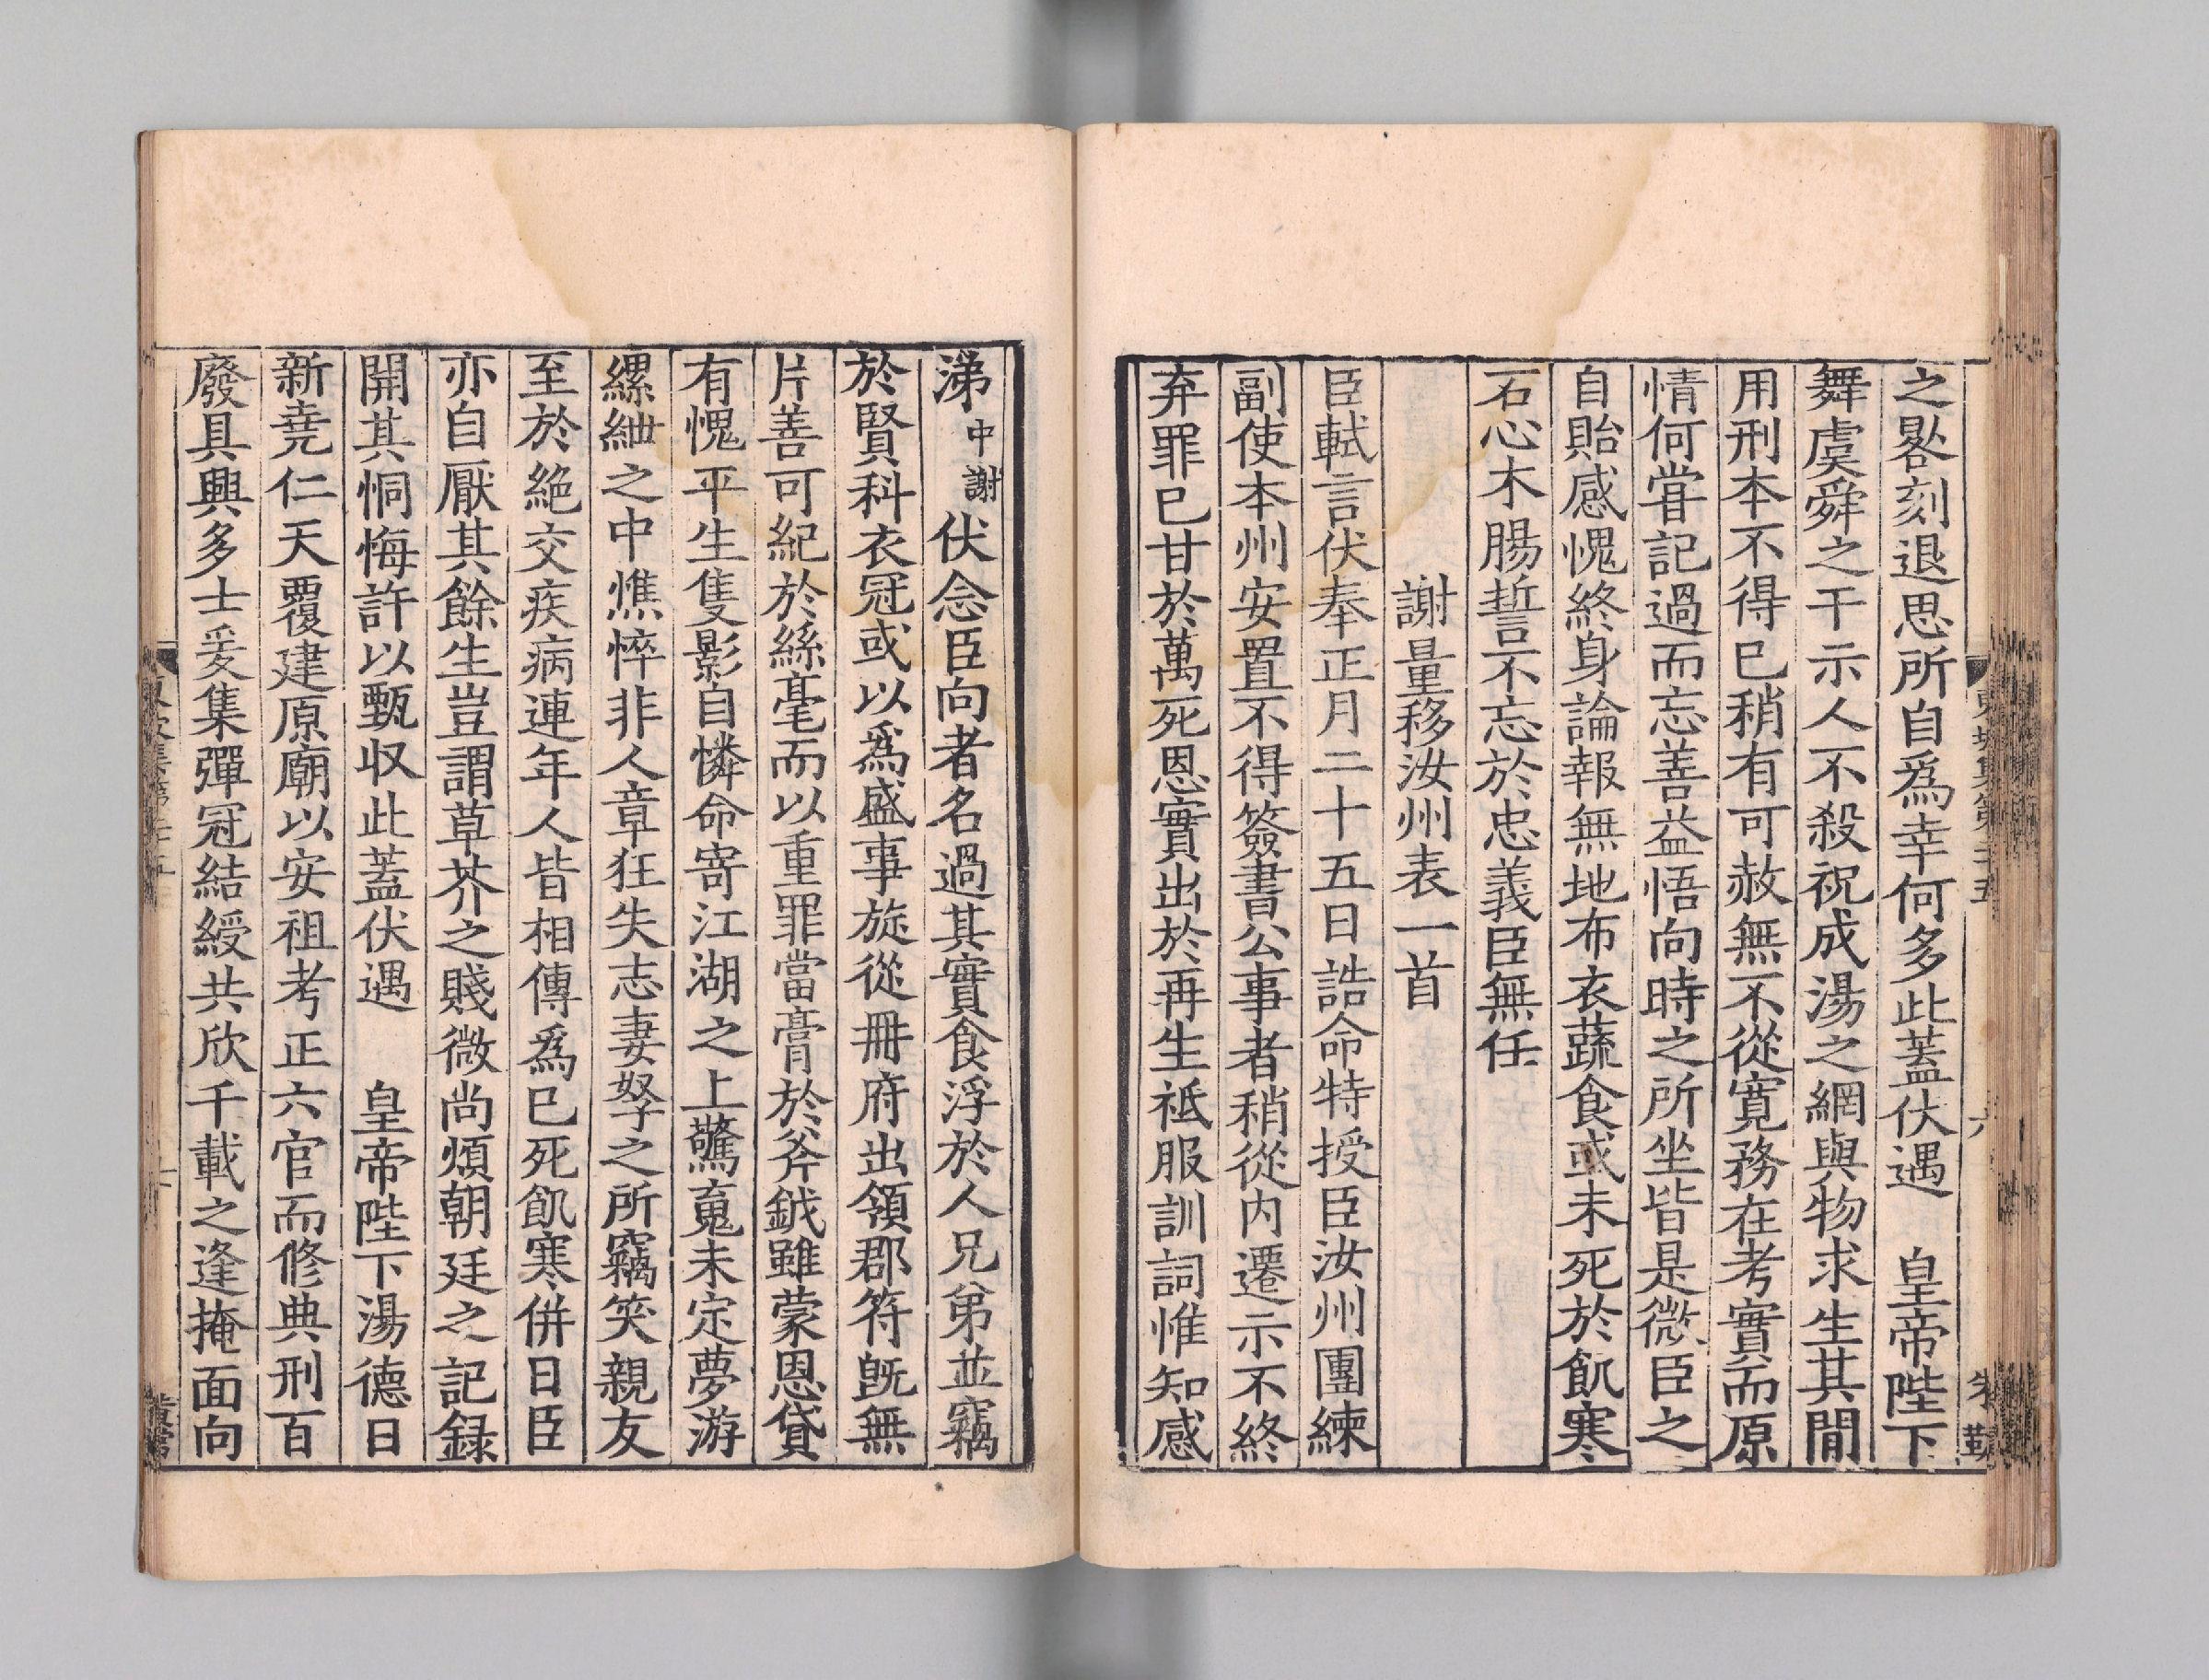 之晷刻退思所自爲幸何多此蓋伏遇　皇帝陛下
舞虞舜之干示人不殺祝成湯之網與物求生其閒
用刑本不得已稍有可赦無不從寬務在考實而原
情何甞記過而忘善益悟向時之所坐皆是微臣之
自貽感愧終身論報無地布衣蔬食或未死於飢寒
石心木腸誓不忘於忠義臣無任
謝量移汝州表一首
臣軾言伏奉正月二十五日誥命特授臣汝州團練
副使本州安置不得簽書公事者稍從内遷示不終
弃罪已甘於萬死恩實出於再生祗服訓詞惟知感
涕中謝伏念臣向者名過其實食浮於人兄弟並竊
於賢科衣冠或以爲盛事旋從冊府出領郡符旣無
片善可紀於絲毫而以重罪當膏於斧鉞雖蒙恩貸
有愧平生隻影自憐命寄江湖之上驚䰟未定夢游
縲紲之中憔悴非人章狂失志妻孥之所竊笑親友
至於絕交疾病連年人皆相傳爲已死飢寒併日臣
亦自厭其餘生豈謂草芥之賤微尚煩朝廷之記録
開其恫悔許以甄収此蓋伏遇　皇帝陛下湯德日
新堯仁天覆建原廟以安祖考正六官而修典刑百
廢具興多士爰集彈冠結綬共欣千載之逢掩面向